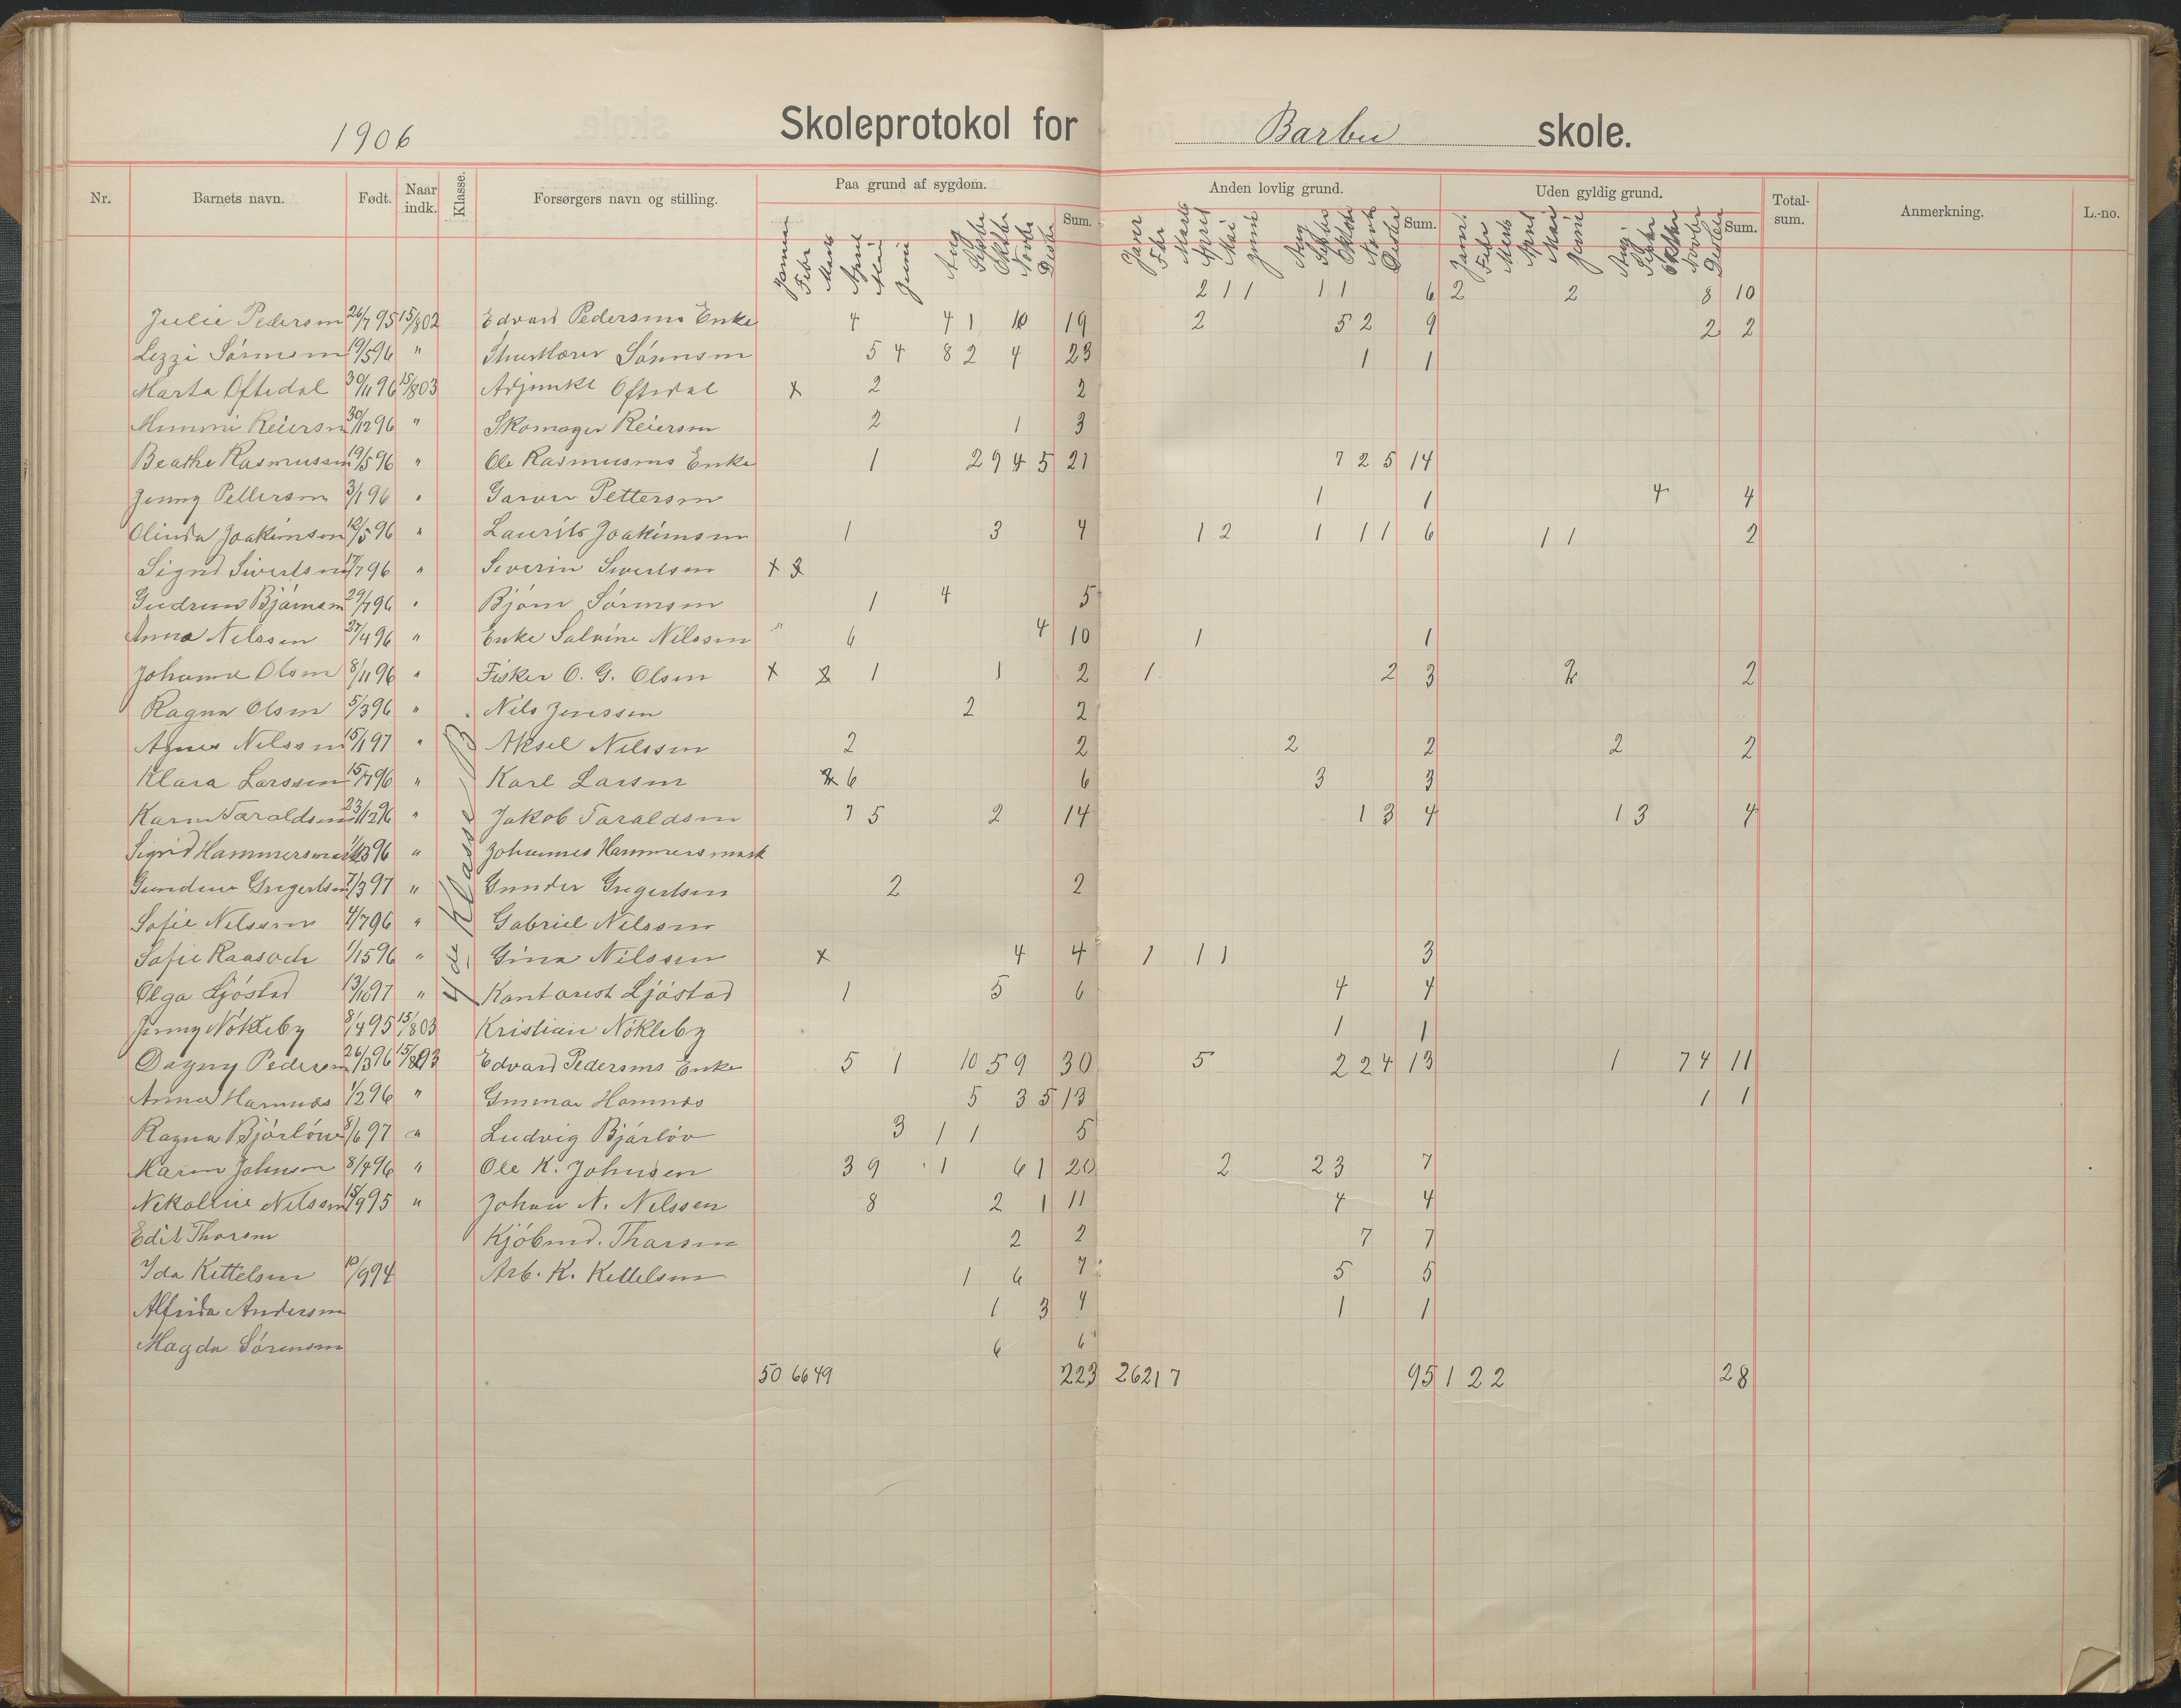 1906 Skoleprotokol for Barbu skole.
Nr. Barnets navn. Født. Naar indk. Klasse. Forsørgers navn og stilling. Paa grund af sygdom. Sum. Anden lovlig grund. Sum. Uden gyldig grund. Sum. Total-sum. Anmerkning. L.-no.
Januar Febr Marts April Mai Juni Aug Septbr Oktbr Novbr Decbr
2 1 1 1 1 6 2 2 8 10
Julie Pedersen 26/7 95 15/8 02 Edvard Pedersens Enke 4 4 1 10 19 2 5 2 9 2 2
Lizzi Sörensen 19/5 96 " Sörensen 5 4 8 2 4 23 1 1
Marta Oftedal 30/11 96 15/8 03 Adjunkt Oftedal x 2 2
Mimmi Reiersen 30/12 96 " Skomager Reiersen 2 1 3
Beathe Rasmussen 19/5 96 " Ole Rasmusens Enke 1 2 9 4 5 21 7 2 5 14
Jenny Pettersen 3/1 96 " Garver Pettersen 1 1 4 4
Olinda Joakimsen 12/5 96 " Laurits Joakimsen 1 3 4 1 2 1 1 1 6 1 1 2
Sigrid Sivertsen 17/7 96 " Severin Sivertsen x 3
Gudrun Bjørnsen 29/7 96 " Bjørn Sörensen 1 4 5
Anna Nilssen 27/4 96 " Enke Salvine Nilssen " 6 4 10 1 1
Johanna Olsen 8/11 96 " Fisker O. G. Olsen x 2 1 1 2 1 2 3 2 2
Ragna Olsen 5/3 96 " Nils Jenssen 2 2
Agnes Nilssen 15/1 97 " Aksel Nilssen 2 2 2 2 2 2
Klara Larssen 15/7 96 " Karl Larsen 2 6 6 3 3
Karen Taraldsen 23/12 96 " Jakob Taraldsen 7 5 2 14 1 3 4 1 3 4
Sigrid Hammersmark 1/3 96 " Johannes Hammersmark
Gundine Gregertsen 7/3 97 " Gunder Gregertsen 2 2
Sofie Nilssen 4/7 96 " Gabriel Nilssen
Sofie Raasode 1/5 96 " Gina Nilssen x 4 4 1 1 1 3
Olga Ljöstad 13/10 97 " Kontorist Ljöstad 1 5 6 4 4
4de Klasse B
Jenny Nökleby 8/4 95 15/8 03 Kristian Nökleby 1 1
Dagny Pedersen 26/3 96 15/8 03 Edvard Pedersens Enke 5 1 10 5 9 30 5 2 2 4 13 1 7 4 11
Anna Hamnes 1/2 96 " Gunnar Hamnes 5 3 5 13 1 1
Ragna Bjórlów 8/6 97 " Ludvig Bjórlöv 3 1 1 5
Karen Johnsen 8/4 96 " Ole K. Johnsen 3 9 1 6 1 20 2 2 3 7
Nekoline Nilssen 15/9 95 " Johan N. Nilssen 8 2 1 11 4 4
Edit Thorsen Kjöbmd. Thorsen 2 2 7 7
Ida Kittelsen 10/9 94 Arb. K. Kittelsen 1 6 7 5 5
Alfrida Andersen 1 3 4 1 1
Magda Sörensen 6 6
50 66 49 223 26 21 7 95 1 2 2 28